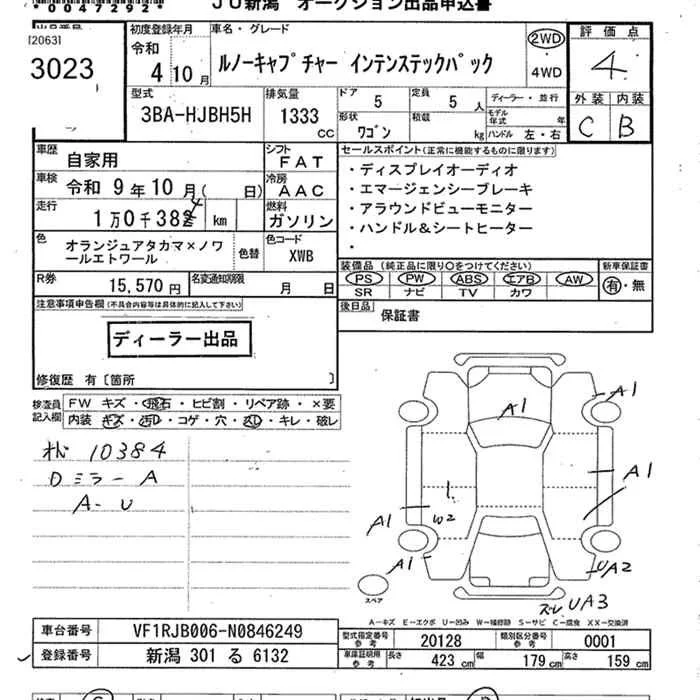 *0047292*
JU新潟 オークション出品申込書
[2063]
3023
初度登録年月
令和
4 10 月
車名・グレード
ルノーキャプチャー インテンステックパック
2WD
・
4WD
評価点
4
外装 内装
C B
型式
3BA-HJBH5H
排気量
1333
cc
ドア
5
定員
5 人
形状
ワゴン
積載
kg
ディーラー・並行
モデル年式 年
ハンドル 左・右
車歴
自家用
シフト
FAT
車検
令和 9年10月( 日)
冷房
AAC
走行
1万0千38 4 km
燃料
ガソリン
色
オランジュアタカマ×ノワ
ールエトワール
色替
色コード
XWB
R券
15,570 円
名変通知期限
月 日
セールスポイント(正常に機能するものに限ります)
・ディスプレイオーディオ
・エマージェンシーブレーキ
・アラウンドビューモニター
・ハンドル&シートヒーター
・
装備品(純正品に限り○をつけてください)
PS PW ABS エアB AW
SR ナビ TV カワ
新車保証書
有・無
後日品
保証書
注意事項申告欄(不具合内容等は具体的に記入して下さい)
ディーラー出品
修復歴 有〔箇所 〕
検査員
記入欄
FW キズ・飛石・ヒビ割・リペア跡・×要
内装 キズ・汚れ・コゲ・穴・スレ・キレ・破レ
10384
Dミラー A
A-U
A1
A1
A1
1.
W2
A1
A1
UA2
スレ UA3
スペア
A-キズ E-エクボ U-凹み W-補修跡 S-サビ C-腐食 XX-交換済
車台番号
VF1RJB006-N0846249
登録番号
新潟 301 る 6132
型式指定番号
参考
20128
類別区分番号
参考
0001
車庫証明用
参考
長さ
423 cm
幅
179 cm
高さ
159 cm